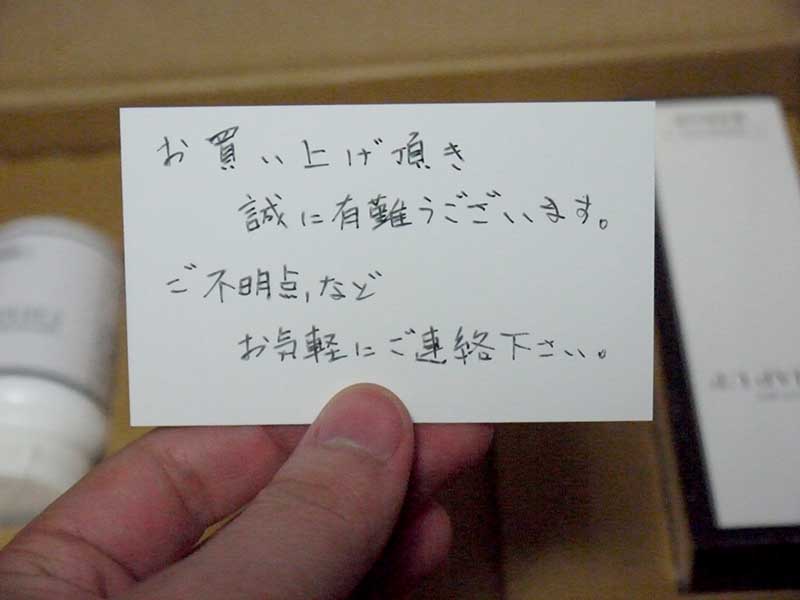 お買い上げ頂き
誠に有難うございます。
ご不明点,など
お気軽にご連絡下さい。